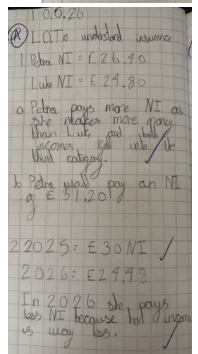 10.6.26
LO: To understand insurance
1 Petra NI = £26.40
Luke NI = £24.80
a Petra pays more NI as
she makes more money
than Luke and both
incomes fall into the
third catagory.
b Petra would pay an NI
of £31.20
2 2025 = £30 NI
2026 = £29.98
In 2026 she pays
less NI because her income
is way less.